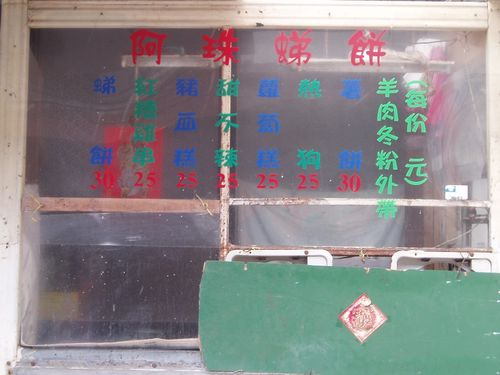 阿珠蝭餅
蝭餅 30
紅糟雞串 25
豬血糕 25
甜不辣 25
蘿蔔糕 25
熱狗 25
薯餅 30
羊肉冬粉外帶
(每份 元)